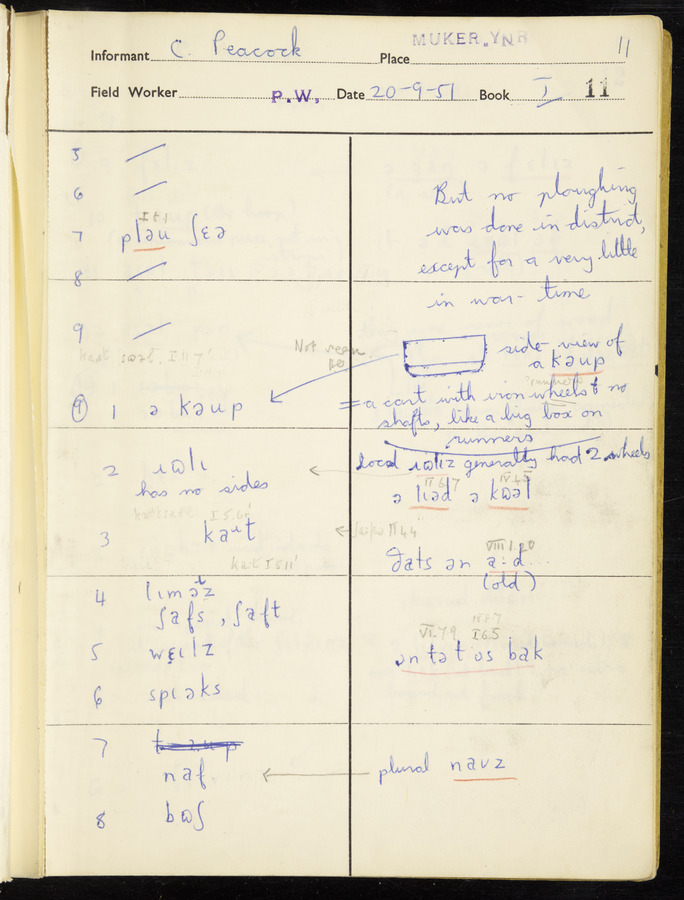 MUKER. YNR 11
Informant C. Peacock Place
Field Worker P.W. Date 20-9-51 Book I 11
5 /
6 /
I 7.1
7 pləu ʃɛə
8 /
9 /
But no ploughing
was done in district,
except for a very little
in war-time
Not
side-view of
a kəup
9 1 ə kəup
= a cart with iron wheels & no
shafts, like a big box on
runners
2 ɹɷlɪ
has no sides
local ɹɷlɪz generally had 2 wheels
ə lɪəd ə kɷəl
3 kaᵗt
ðats ən a:d...
(old)
4 lɪmətz
ʃafs, ʃaft
5 wɛɪlz
6 spɪəks
VI.7.9 I 6.5
ən tə t os bak
7
naf
plural navz
8 bɷʃ